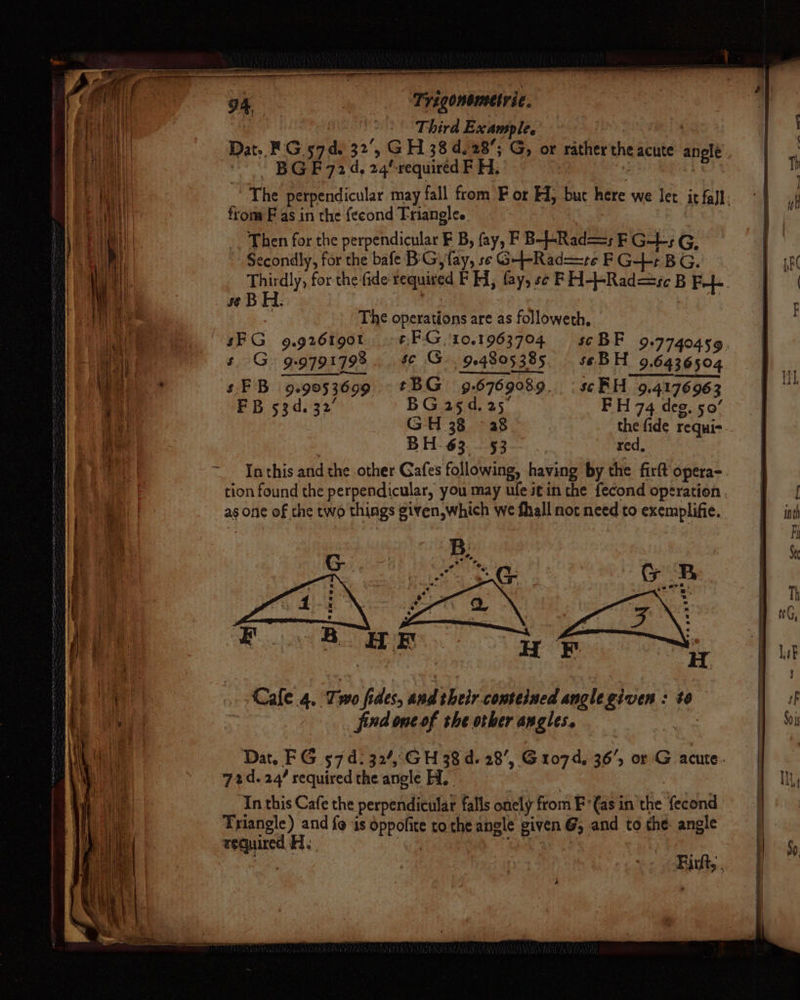 94. Trigonometrie.
Third Example.
Dat. FG 57 d. 32′, GH 38 d. 28′; G, or rather the acute angle
BGF 72 d. 24′ required FH.
The perpendicular may fall from F or H, but here we let it fall
from F as in the ſecond Triangle.
Then for the perpendicular F B, ſay, F B+Rad=s F G+s G.
Secondly, for the baſe B G, ſay, sc G+Rad=tc F G+t B G.
Thirdly, for the ſide required F H, ſay, sc F H+Rad=sc B F+
sc B H.
The operations are as followeth,
sFG 9.9261901 tFG 10.1963704 scBF 9.7740459
s G 9.9791798 sc G 9.4805385 scBH 9.6436504
s F B 9.9053699 tBG 9.6769089 scFH 9.4176963
FB 53 d. 32′ BG 25 d. 25′ FH 74 deg. 50′
GH 38 28 the ſide requi-
BH 63 53 red.
In this and the other Caſes following, having by the firſt opera-
tion found the perpendicular, you may uſe it in the ſecond operation
as one of the two things given, which we ſhall not need to exemplifie.
B
G G G B
1 2 3
F B H F H F H
Caſe 4. Two ſides, and their conteined angle given : to
find one of the other angles.
Dat. FG 57 d. 32′, GH 38 d. 28′, G 107 d. 36′, or G acute
72 d. 24′ required the angle H.
In this Caſe the perpendicular falls onely from F (as in the ſecond
Triangle) and ſo is oppoſite to the angle given G, and to the angle
required H.
Firſt,